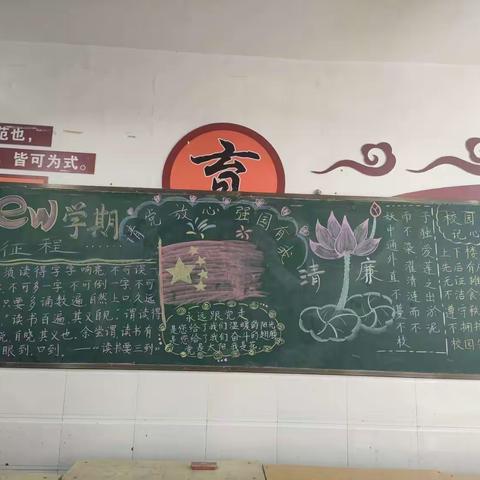 范也，
皆可为式。
育
ew学期
征程
须读得字字响亮 不可误一
不可多一字 不可倒一字 不可
只要多诵数遍 自然上口 久远
"读书百遍，其义自见" 谓读得
自晓其义也。余尝谓读书有
眼到，口到。——读书要三到
党放心 强国有我
永远跟党走
是您给了我们温暖的阳光
是您给了我们奋斗的翅膀
清廉
予独爱莲之出淤泥
而不染 濯清涟而不
妖 中通外直 不蔓不枝
校园
记心